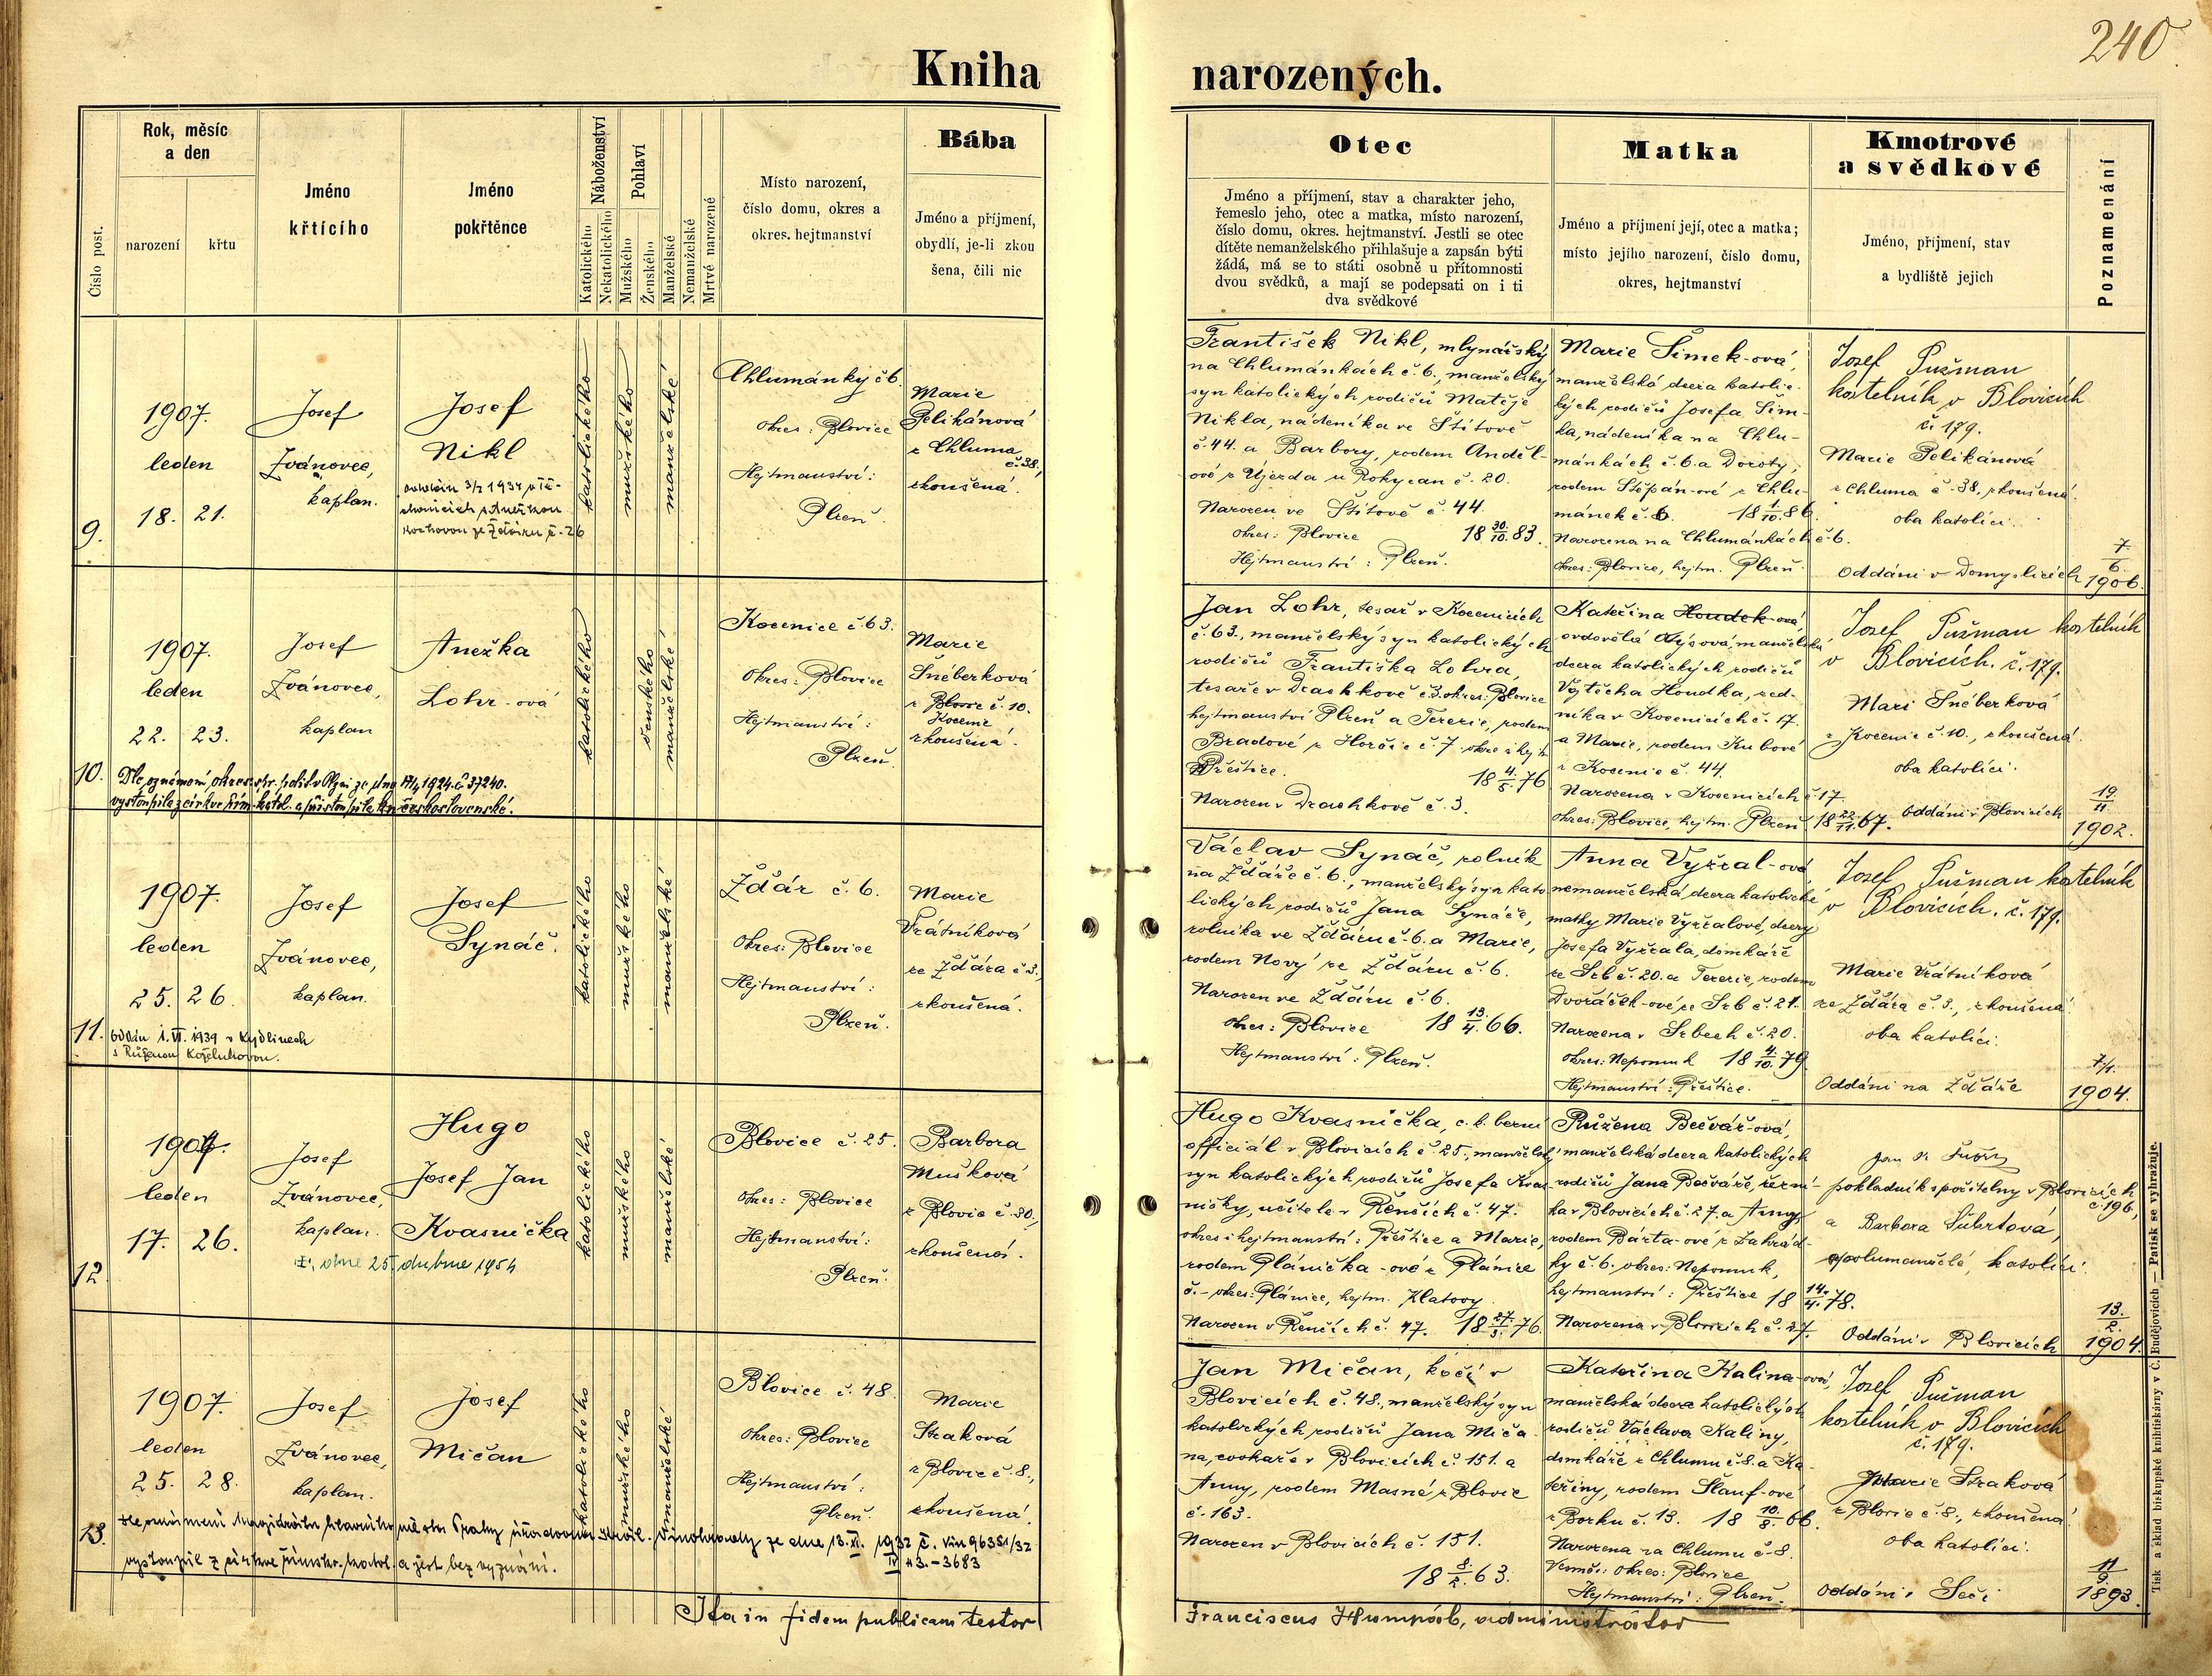 240
Kniha narozených.
Číslo post.
Rok, měsíc
a den
narození
křtu
Jméno
křtícího
Jméno
pokřtěnce
Náboženství
Katolického
Nekatolického
Pohlaví
Mužského
Ženského
Manželské
Nemanželské
Mrtvě narozené
Místo narození,
číslo domu, okres a
okres. hejtmanství
Bába
Jméno a příjmení,
obydlí, je-li zkou
šena, čili nic
Otec
Jméno a příjmení, stav a charakter jeho,
řemeslo jeho, otec a matka, místo narození,
číslo domu, okres. hejtmanství. Jestli se otec
dítěte nemanželského přihlašuje a zapsán býti
žádá, má se to státi osobně u přítomnosti
dvou svědků, a mají se podepsati on i ti
dva svědkové
Matka
Jméno a příjmení její, otec a matka;
místo jejího narození, číslo domu,
okres, hejtmanství
Kmotrové
a svědkové
Jméno, příjmení, stav
a bydliště jejich
Poznamenání
9.
1907.
leden
18. 21.
Josef
Ivánovec,
kaplan.
Josef
Nikl
katolického
mužského
manželské
Chlumánky č 6.
okres: Blovice
Hejtmanství:
Plzeň.
Marie
Pelikánová
z Chluma
č. 38,
zkoušená.
František Nikl, mlynářský
na Chlumánkách č. 6., manželský
syn katolických rodičů Matěje
Nikla, nádeníka ve Štítově
č. 44. a Barbory, rodem Anděl-
ové z Újezda u Rokycan č. 20.
Narozen ve Štítově č. 44.
okres: Blovice 18 30./10. 83.
Hejtmanství: Plzeň.
Marie Šimek-ová,
manželská dcera katolic-
kých rodičů Josefa Šim-
ka, nádeníka na Chlu-
mánkách č. 6. a Doroty,
rodem Štěpán-ové z Chlu-
mánek č. 6. 18 1/10. 86.
Narozena na Chlumánkách č. 6.
okres: Blovice, hejtm. Plzeň.
Josef Pužman
kostelník v Blovicích
č. 179.
Marie Pelikánová
z Chluma č. 38, zkoušená.
oba katolíci.
Oddáni v Domyslicích
7./6.
1906.
10.
1907.
leden
22. 23.
Josef
Ivánovec,
kaplan
Anežka
Lohr-ová
katolického
ženského
manželské
Kocenice č. 63.
Okres: Blovice
Hejtmanství:
Plzeň.
Marie
Šnéberková
z Blovic č. 10.
Kocenic
zkoušená.
Dle oznámení okres. spr. polit. v Plzni ze dne 17/4 1924. č. 37240.
vystoupila z církve řím. katol. a přistoupila ku československé.
Jan Lohr, tesař v Kocenicích
č. 63., manželský syn katolických
rodičů Františka Lohra,
tesaře v Drachkově č. 3. okres: Blovice
hejtmanství Plzeň a Terezie, rodem
Bradové z Horšic č. 7 okres i hejt.
Přeštice. 18 4./5. 76
Narozen v Drachkově č. 3.
Kateřina Houdek-ová,
ovdovělá, manželská
dcera katolických rodičů
Vojtěcha Houdka, sed-
níka v Kocenicích č. 17.
a Marie, rodem Kubové
z Kocenic č. 44.
Narozena v Kocenicích č 17.
okres: Blovice, hejtm. Plzeň 18 22./11. 67.
Josef Pužman kostelník
v Blovicích. č. 179.
Mari Šnéberková
z Kocenic č. 10., zkoušená.
oba katolíci.
Oddáni v Blovicích
19/11
1902.
11.
1907.
leden
25. 26.
Josef
Ivánovec,
kaplan.
Josef
Synáč.
katolického
mužského
manželské
Žďár č. 6.
Okres: Blovice
Hejtmanství:
Plzeň.
Marie
Vrátníková
ze Žďára č 3.,
zkoušená.
Oddán 1. VI. 1939 v Kydlinech
s Růženou Koželuhovou.
Václav Synáč, rolník
na Žďáře č. 6., manželský syn kato
lických rodičů Jana Synáče,
rolníka ve Žďáru č. 6. a Marie,
rodem Nový ze Žďáru č. 6.
Narozen ve Žďáru č. 6.
okres: Blovice 18 13./4. 66.
Hejtmanství: Plzeň.
Anna Vyžral-ová,
nemanželská, dcera katolické
matky Marie Vyžralové, dcery
Josefa Vyžrala, domkáře
ze Srb č. 20. a Terezie, rodem
Dvořáček-ové, ze Srb č. 21.
Narozena v Srbech č. 20.
okres: Nepomuk 18 4./10. 79.
Hejtmanství: Přeštice.
Josef Pužman kostelník
v Blovicích. č. 179.
Marie Vrátníková
ze Žďára č. 3., zkoušená.
oba katolíci.
Oddáni na Žďáře
7/1.
1904.
12
1907.
leden
17. 26.
Josef
Ivánovec,
kaplan.
Hugo
Josef Jan
Kvasnička
dne 25. dubna 1954
katolického
mužského
manželské
Blovice č. 25.
okres: Blovice
Hejtmanství:
Plzeň.
Barbora
Mušková
z Blovic č. 30.,
zkoušená.
Hugo Kvasnička, c. k. berní
officiál v Blovicích č. 25., manželský
syn katolických rodičů Josefa Kvas-
ničky, učitele v Řenčích č. 47.
okres i hejtmanství: Přeštice a Marie,
rodem Plánička-ové z Plánice
č. – okres: Plánice, hejtm. Klatovy
Narozen v Řenčích č. 47. 18 27./3. 76.
Růžena Bečvář-ová,
manželská dcera katolických
rodičů Jana Bečváře, řezní-
ka v Blovicích č. 27. a Anny,
rodem Bárta-ové z Zahrád-
ky č. 6. okres: Nepomuk,
hejtmanství: Přeštice 18 14./4. 78.
Narozena v Blovicích č. 27.
pokladník spořitelny v Blovicích
č. 196,
a Barbora Šubrtová,
spolumanželé, katolíci.
Oddáni v Blovicích
13./2.
1904.
13.
1907.
leden
25. 28.
Josef
Ivánovec,
kaplan.
Josef
Mičan
katolického
mužského
manželské
Blovice č. 48
Okres: Blovice
Hejtmanství:
Plzeň.
Marie
Straková
z Blovic č. 8.,
zkoušená.
ze dne 13. XI. 1932 č. 96351/32
vystoupil z církve římsk. katol. a jest bez vyznání. IV 43.-3683
Jan Mičan, kočí v
Blovicích č. 48., manželský syn
katolických rodičů Jana Miča-
na, cvokaře v Blovicích č. 151. a
Anny, rodem Masné z Blovic
č. 163.
Narozen v Blovicích č. 151.
18 8./2. 63.
Kateřina Kalina-ová,
manželská dcera katolických
rodičů Václava Kaliny,
domkáře z Chlumu č. 8. a Ka-
teřiny, rodem Šlauf-ové
z Borku č. 13. 18 10/8. 66.
Narozena za Chlumu č. 8.
okres: Blovice
Hejtmanství: Plzeň.
Josef Pužman
kostelník v Blovicích
č. 179.
Marie Straková
z Blovic č. 8., zkoušená.
oba katolíci.
Oddáni v Seči
11/9.
1893.
Ita in fidem publicam testor
Franciscus Humpál, administrátor
Tisk a sklad biskupské knihtiskárny v Č. Budějovicích — Patisk se vyhražuje.